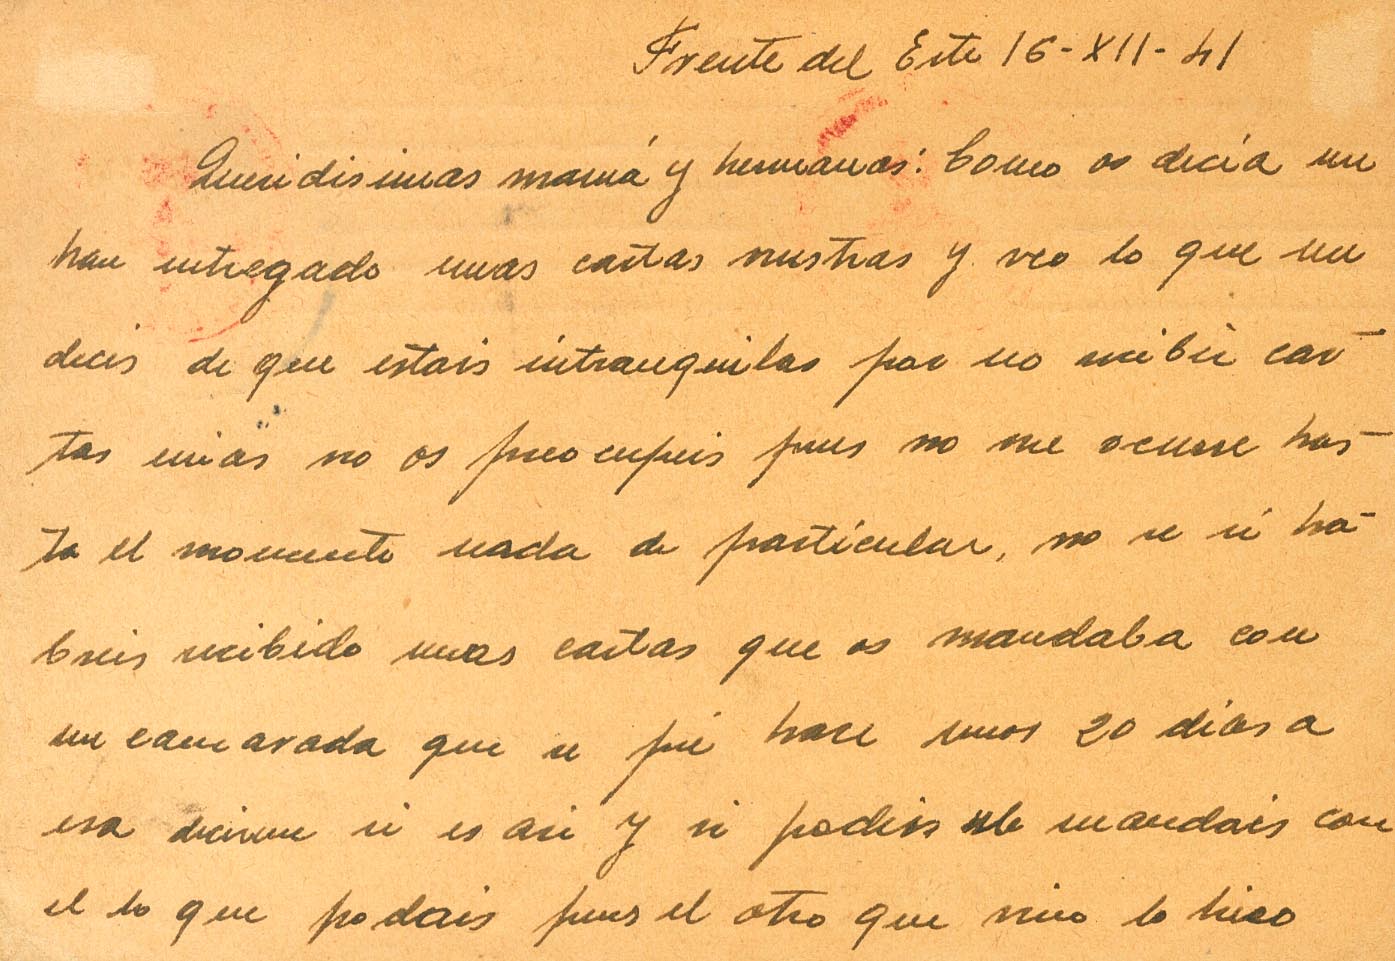 Frente del Este 16-XII-41
Queridisimas mamá y hermanas: Como os decía me
han entregado unas cartas vuestras y veo lo que me
decis de que estais intranquilas por no recibir car-
tas mias no os preocupeis pues no me ocurre has-
ta el momento nada de particular, no se si ha-
breis recibido unas cartas que os mandaba con
un camarada que se fué hace unos 20 dias a
esa decirme si es asi y si podeis me mandais con
el lo que podais pues el otro que vino lo hizo